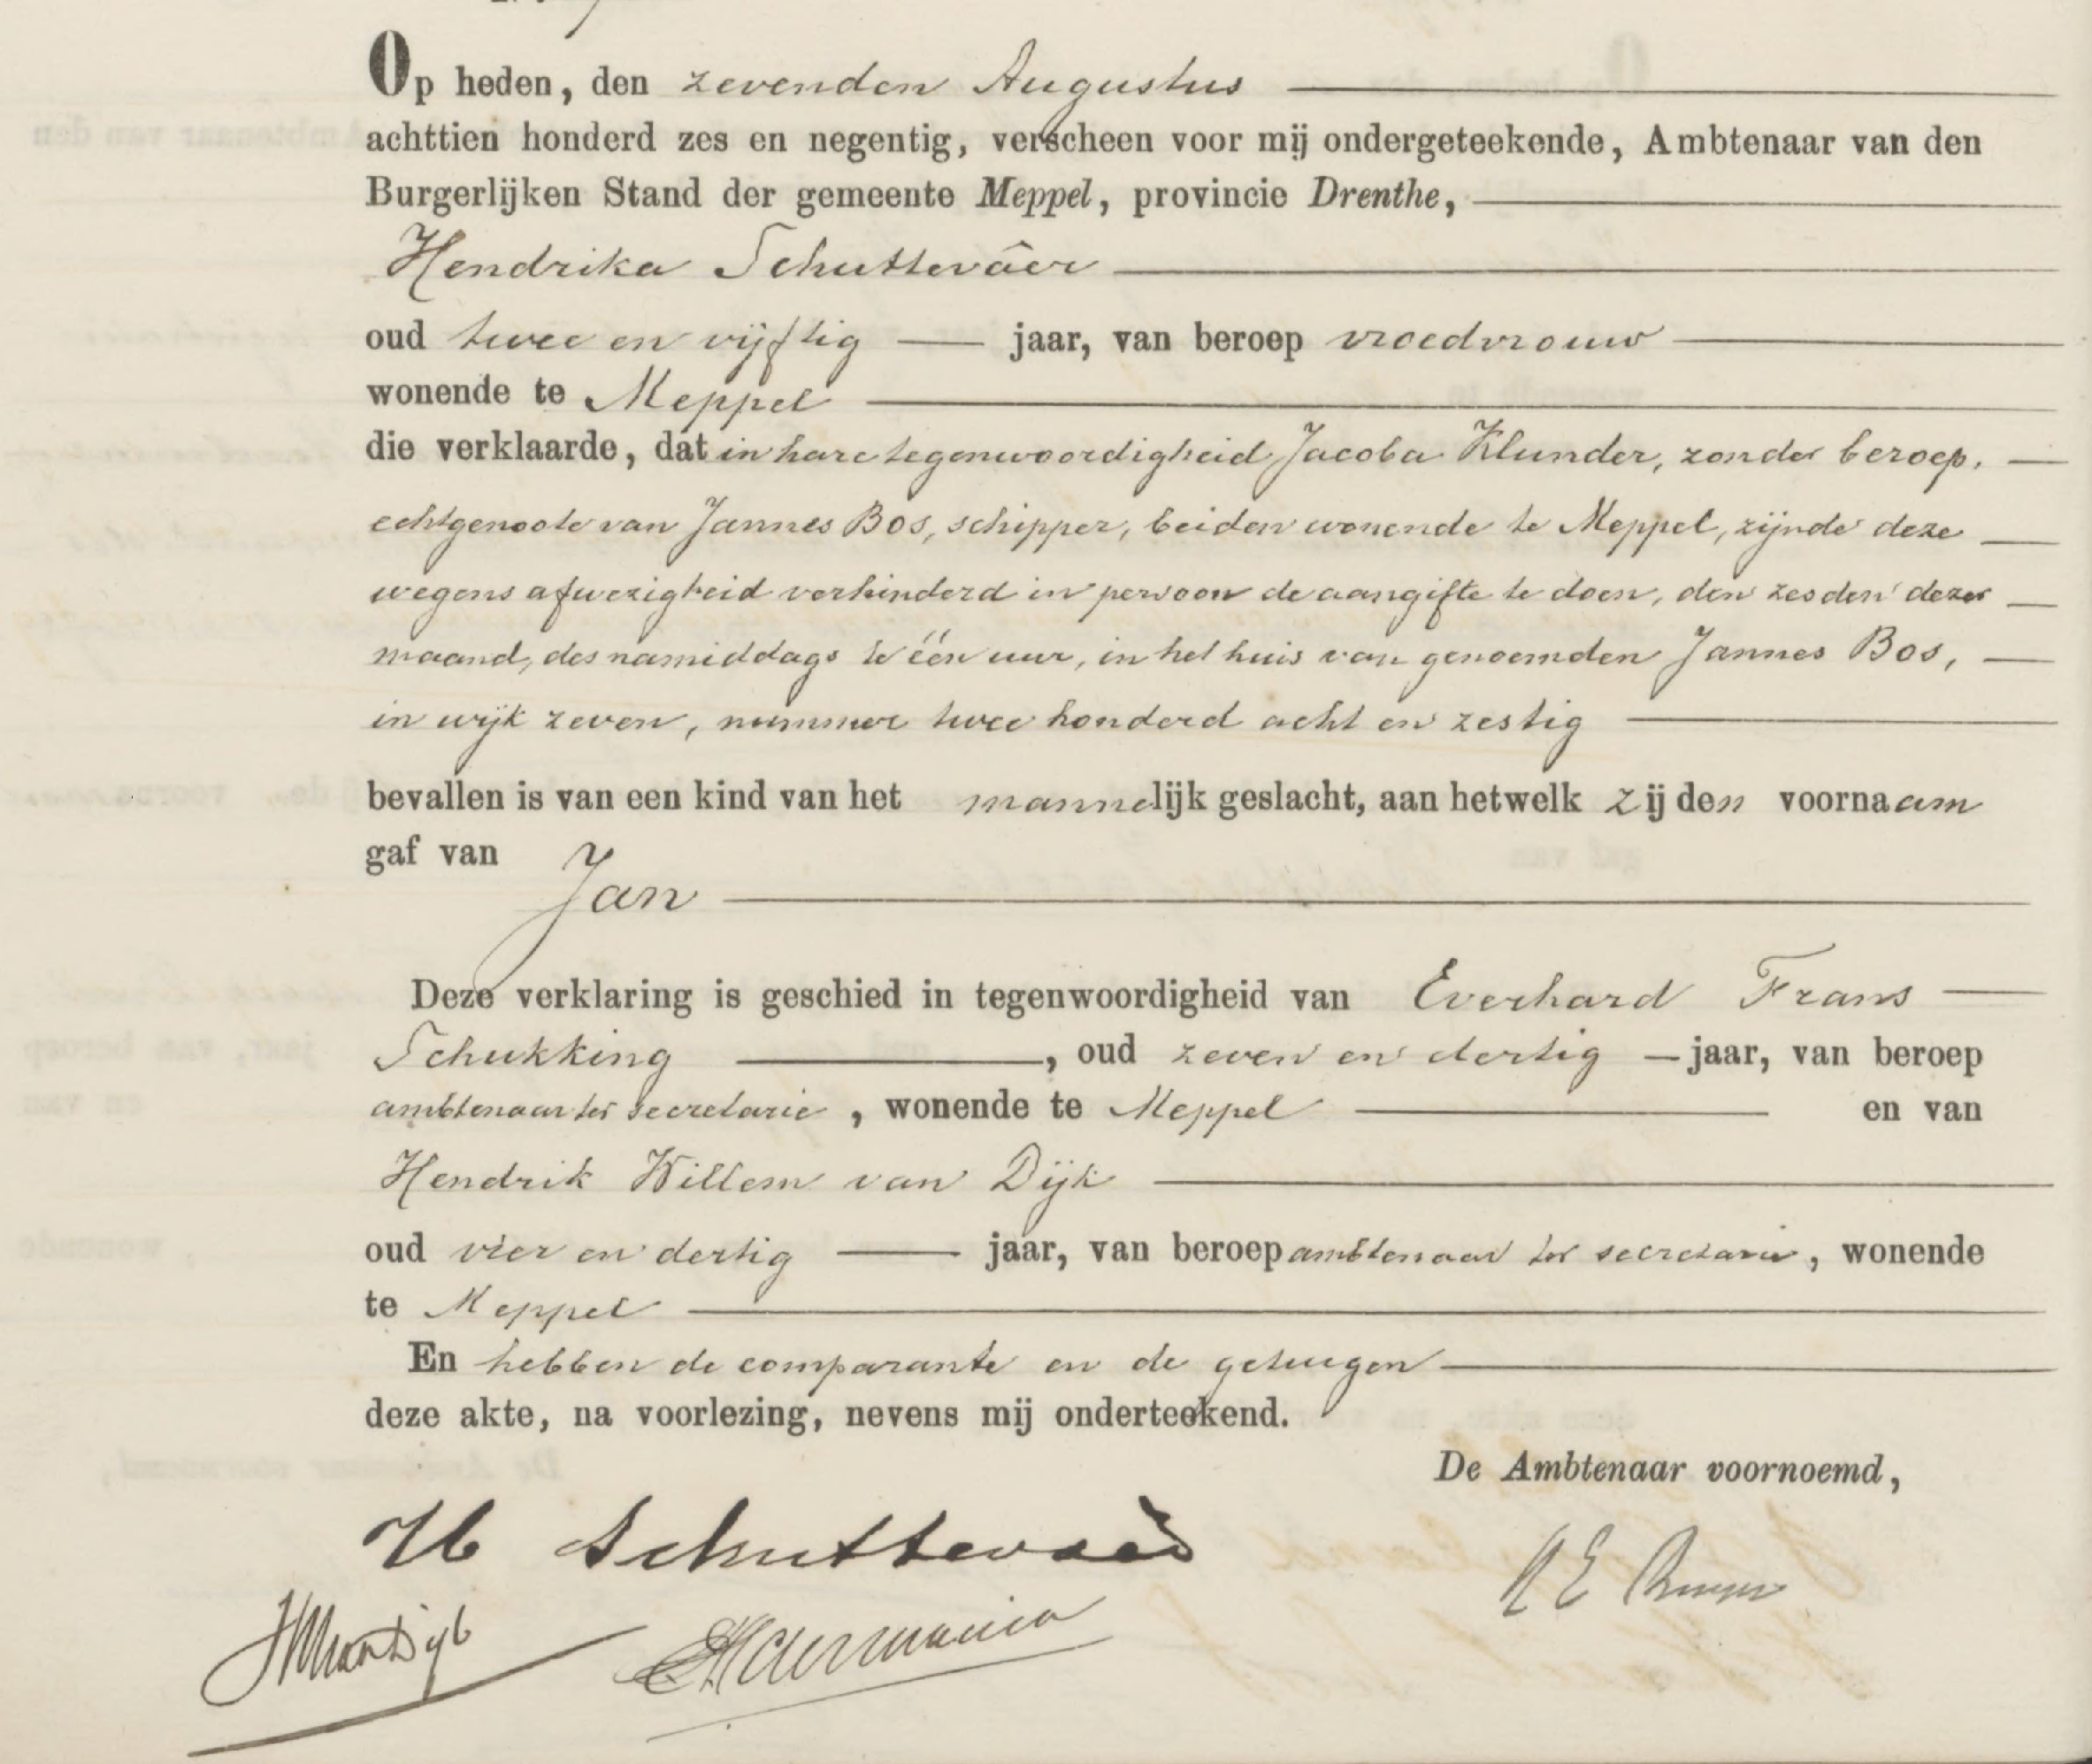 Op heden, den zevenden Augustus
achttien honderd zes en negentig, verscheen voor mij ondergeteekende, Ambtenaar van den
Burgerlijken Stand der gemeente Meppel, provincie Drenthe,
Hendrika Schuttevâer
oud twee en vijftig jaar, van beroep vroedvrouw
wonende te Meppel
die verklaarde, dat in hare tegenwoordigheid Jacoba Klunder, zonder beroep,
echtgenoote van Jannes Bos, schipper, beiden wonende te Meppel, zijnde deze
wegens afwezigheid verhinderd in persoon de aangifte te doen, den zesden dezer
maand, des namiddags te één uur, in het huis van genoemden Jannes Bos,
in wijk zeven, nummer twee honderd acht en zestig
bevallen is van een kind van het mannelijk geslacht, aan hetwelk zij den voornaam
gaf van
Jan
Deze verklaring is geschied in tegenwoordigheid van Everhard Frans
Schukking, oud zeven en dertig jaar, van beroep
ambtenaar ter secretarie, wonende te Meppel en van
Hendrik Willem van Dijk
oud vier en dertig jaar, van beroep ambtenaar ter secretarie, wonende
te Meppel
En hebben de comparante en de getuigen
deze akte, na voorlezing, nevens mij onderteekend.
De Ambtenaar voornoemd,
H Schuttevaer
HWvanDijk